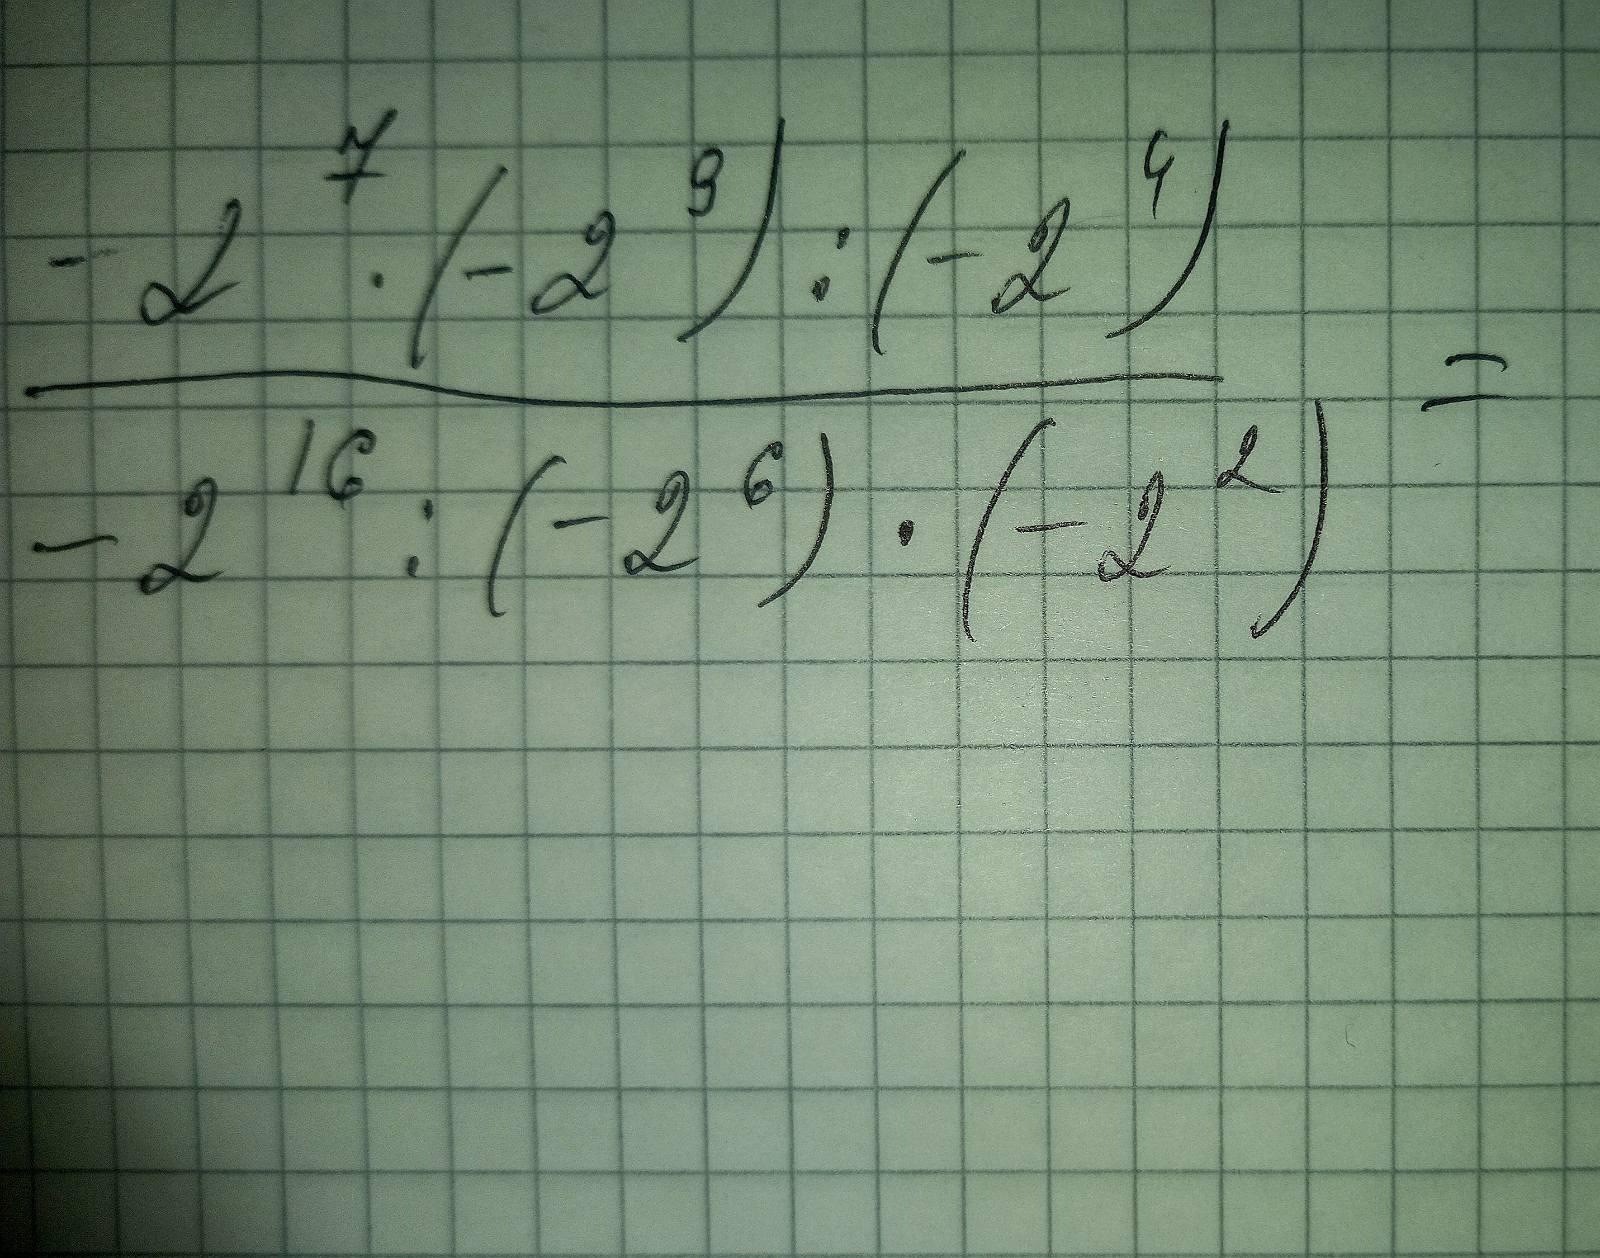 -2⁷ · (-2⁹) : (-2⁴)
-2¹⁶ : (-2⁶) · (-2²) =